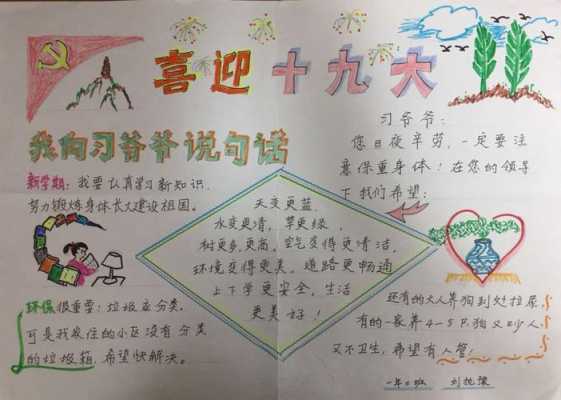 喜迎十九大
我向习爷爷说句话
习爷爷:
您日夜辛劳,一定要注
意保重身体!在您的领导
下我们希望:
新学期:我要认真学习新知识,
努力锻炼身体长大建设祖国。
天变更蓝,
水变更清,草更绿,
树更多更高。空气变得更清洁,
环境变得更美。道路更畅通
上下学更安全,生活
更美好!
环保很重要:垃圾应分类。
可是我家住的小区没有分类
的垃圾箱,希望快解决。
还有的大人养狗到处拉屎,
有的一家养4-5只狗又吵人
又不卫生,希望有人管!